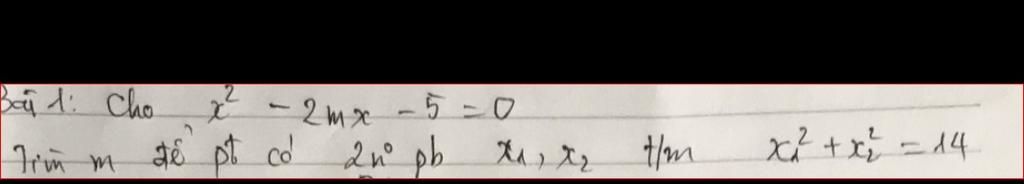 Bài 1: Cho x² - 2mx - 5 = 0
Tìm m để pt có 2 n⁰ pb x₁, x₂ t/m x₁² + x₂² = 14